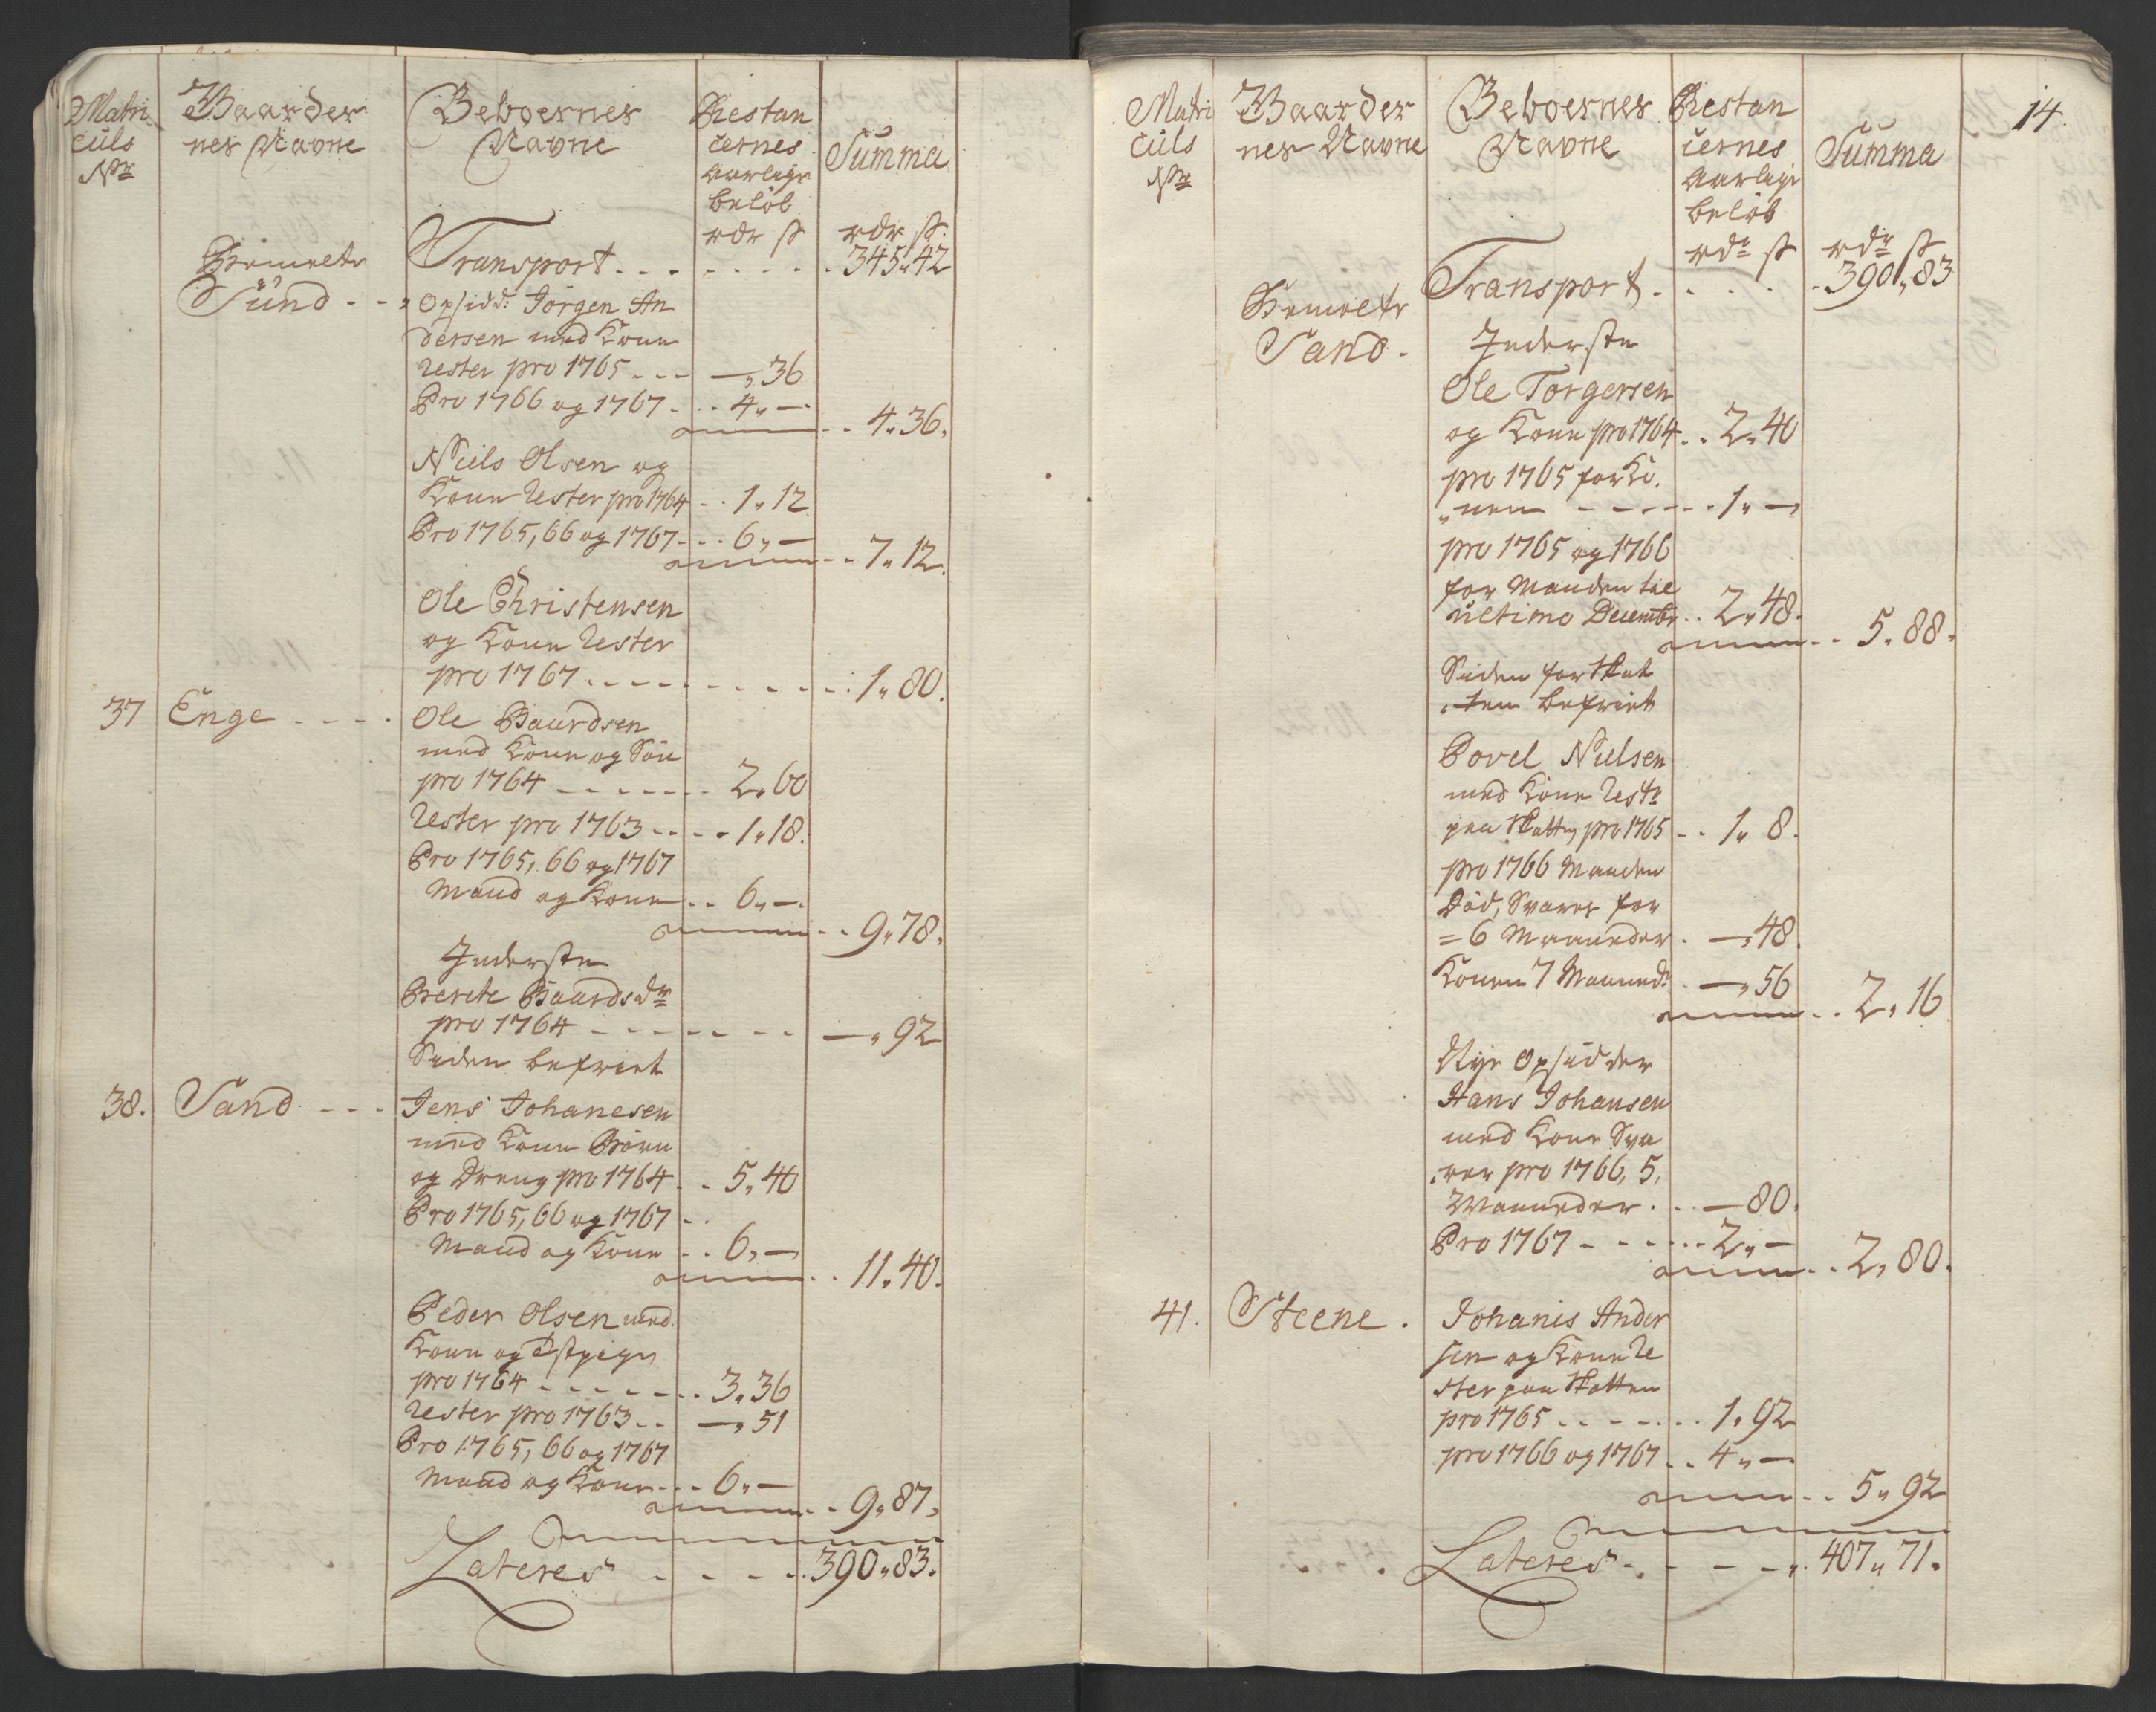 Matri
culs
No
Gaarder
nes Navne
Beboernes
Navne
Restan
cernes
Aarlige
beløb
rdr ß
Summa
rdr ß
Transport . . . . . . . . 345 „ 42
Sund - - „ Opsidd: Jørgen An
dersen med Kone
Rester pro 1765 - - - — „ 36
Pro 1766 og 1767 - . . 4 „ —
. . 4 „ 36.
Niels Olsen og
Kone Rester pro 1764 . . 1 „ 12
Pro 1765, 66 og 1767 - . . 6 „ —
. . 7 „ 12.
Ole Christensen
og Kone Rester
pro 1767 . . . . . . . . . . 1 „ 80.
37 Enge - - - . Ole Baardsen
med Kone og Søn
pro 1764 - - - - - . . 2 „ 60
Rester pro 1763 - - . . 1 „ 18.
Pro 1765, 66 og 1767
Mand og Kone . . 6 „ —.
. . 9 „ 78.
Inderste
Berete Baardsdr
pro 1764 - - - - - - - — „ 92
Siden befriet
38. Sand - - - Jens Johanesen
med Kone Børn
og Dreng pro 1764 . . 5 „ 40
Pro 1765, 66 og 1767 - .
Mand og Kone . . 6 „ —
. . 11 „ 40.
Peder Olsen med
Kone og
pro 1764 - - - - - . . 3 „ 36
Rester pro 1763 . . — „ 51
Pro 1765, 66 og 1767
Mand og Kone . . . 6 „ —
. . 9 „ 87.
Lateres - . - - . 390 „ 83.
14.
Matri
culs
No
Gaarder
nes Navne
Beboernes
Navne
Restan
cernes
Aarlige
beløb
rdr ß
Summa
rdr ß
Transport . . . . . 390 „ 83
Sand - Inderste
Ole Torgersen
og Kone pro 1764 . . 2 „ 40
pro 1765 for Ko-
„nen - - - - . . 1 „ —
pro 1765 og 1766
for Manden til
ultimo Decembr . . 2 „ 48.
. . 5 „ 88.
Siden for Skat
„ten befriet
Povel Nielsen
med Kone Restr
paa Skatten pro 1765 . . 1 „ 8.
pro 1766 Manden
Død, Svarer for
= 6 Maaneder . — „ 48.
Konen 7 Maaned: . — „ 56
. . 2 „ 16
Nye Opsidder
Hans Johansen
med Kone Sva
„rer pro 1766, 5,
Maaneder . . . — 80.
Pro 1767 - - - . . . 2 „ —
. . 2 „ 80.
41. Steene . Johanis Ander
sen og Kone Re
ster paa Skatten
pro 1765 . . - - . . . 1 „ 92
pro 1766 og 1767 . . 4 „ —
. . 5 „ 92
Lateres - . - - - „ 407 „ 71.